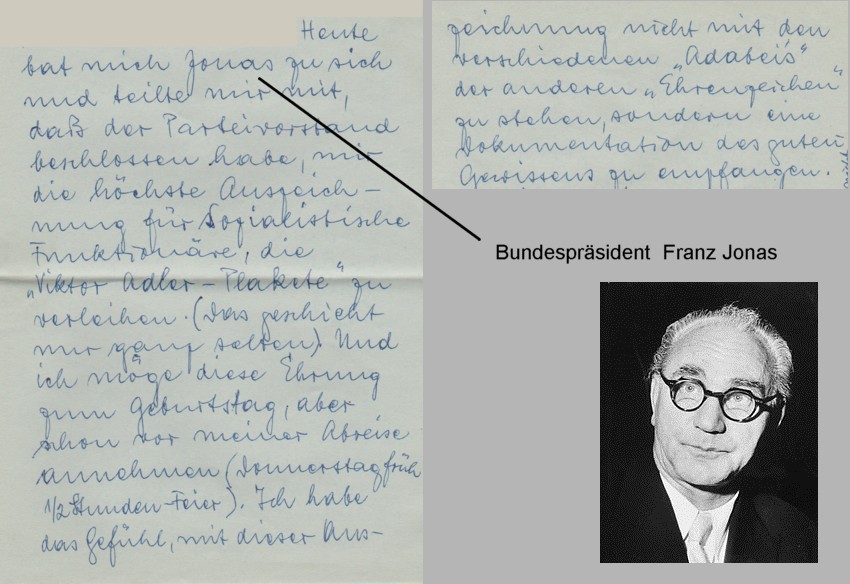 Heute
bat mich Jonas zu sich
und teilte mir mit,
daß der Parteivorstand
beschlossen habe, mir
die höchste Auszeich-
nung für Sozialistische
Funktionäre, die
„Viktor Adler-Plakete" zu
verleihen. (Das geschieht
nur ganz selten). Und
ich möge diese Ehrung
zum Geburtstag, aber
schon vor meiner Abreise
annehmen (Donnerstag früh
1/2 Stunden-Feier). Ich habe
das Gefühl, mit dieser Aus-
zeichnung nicht mit den
verschiedenen „Adabeis"
der anderen „Ehrenzeichen"
zu stehen, sondern eine
Dokumentation des guten
Gewissens zu empfangen.
Bundespräsident Franz Jonas